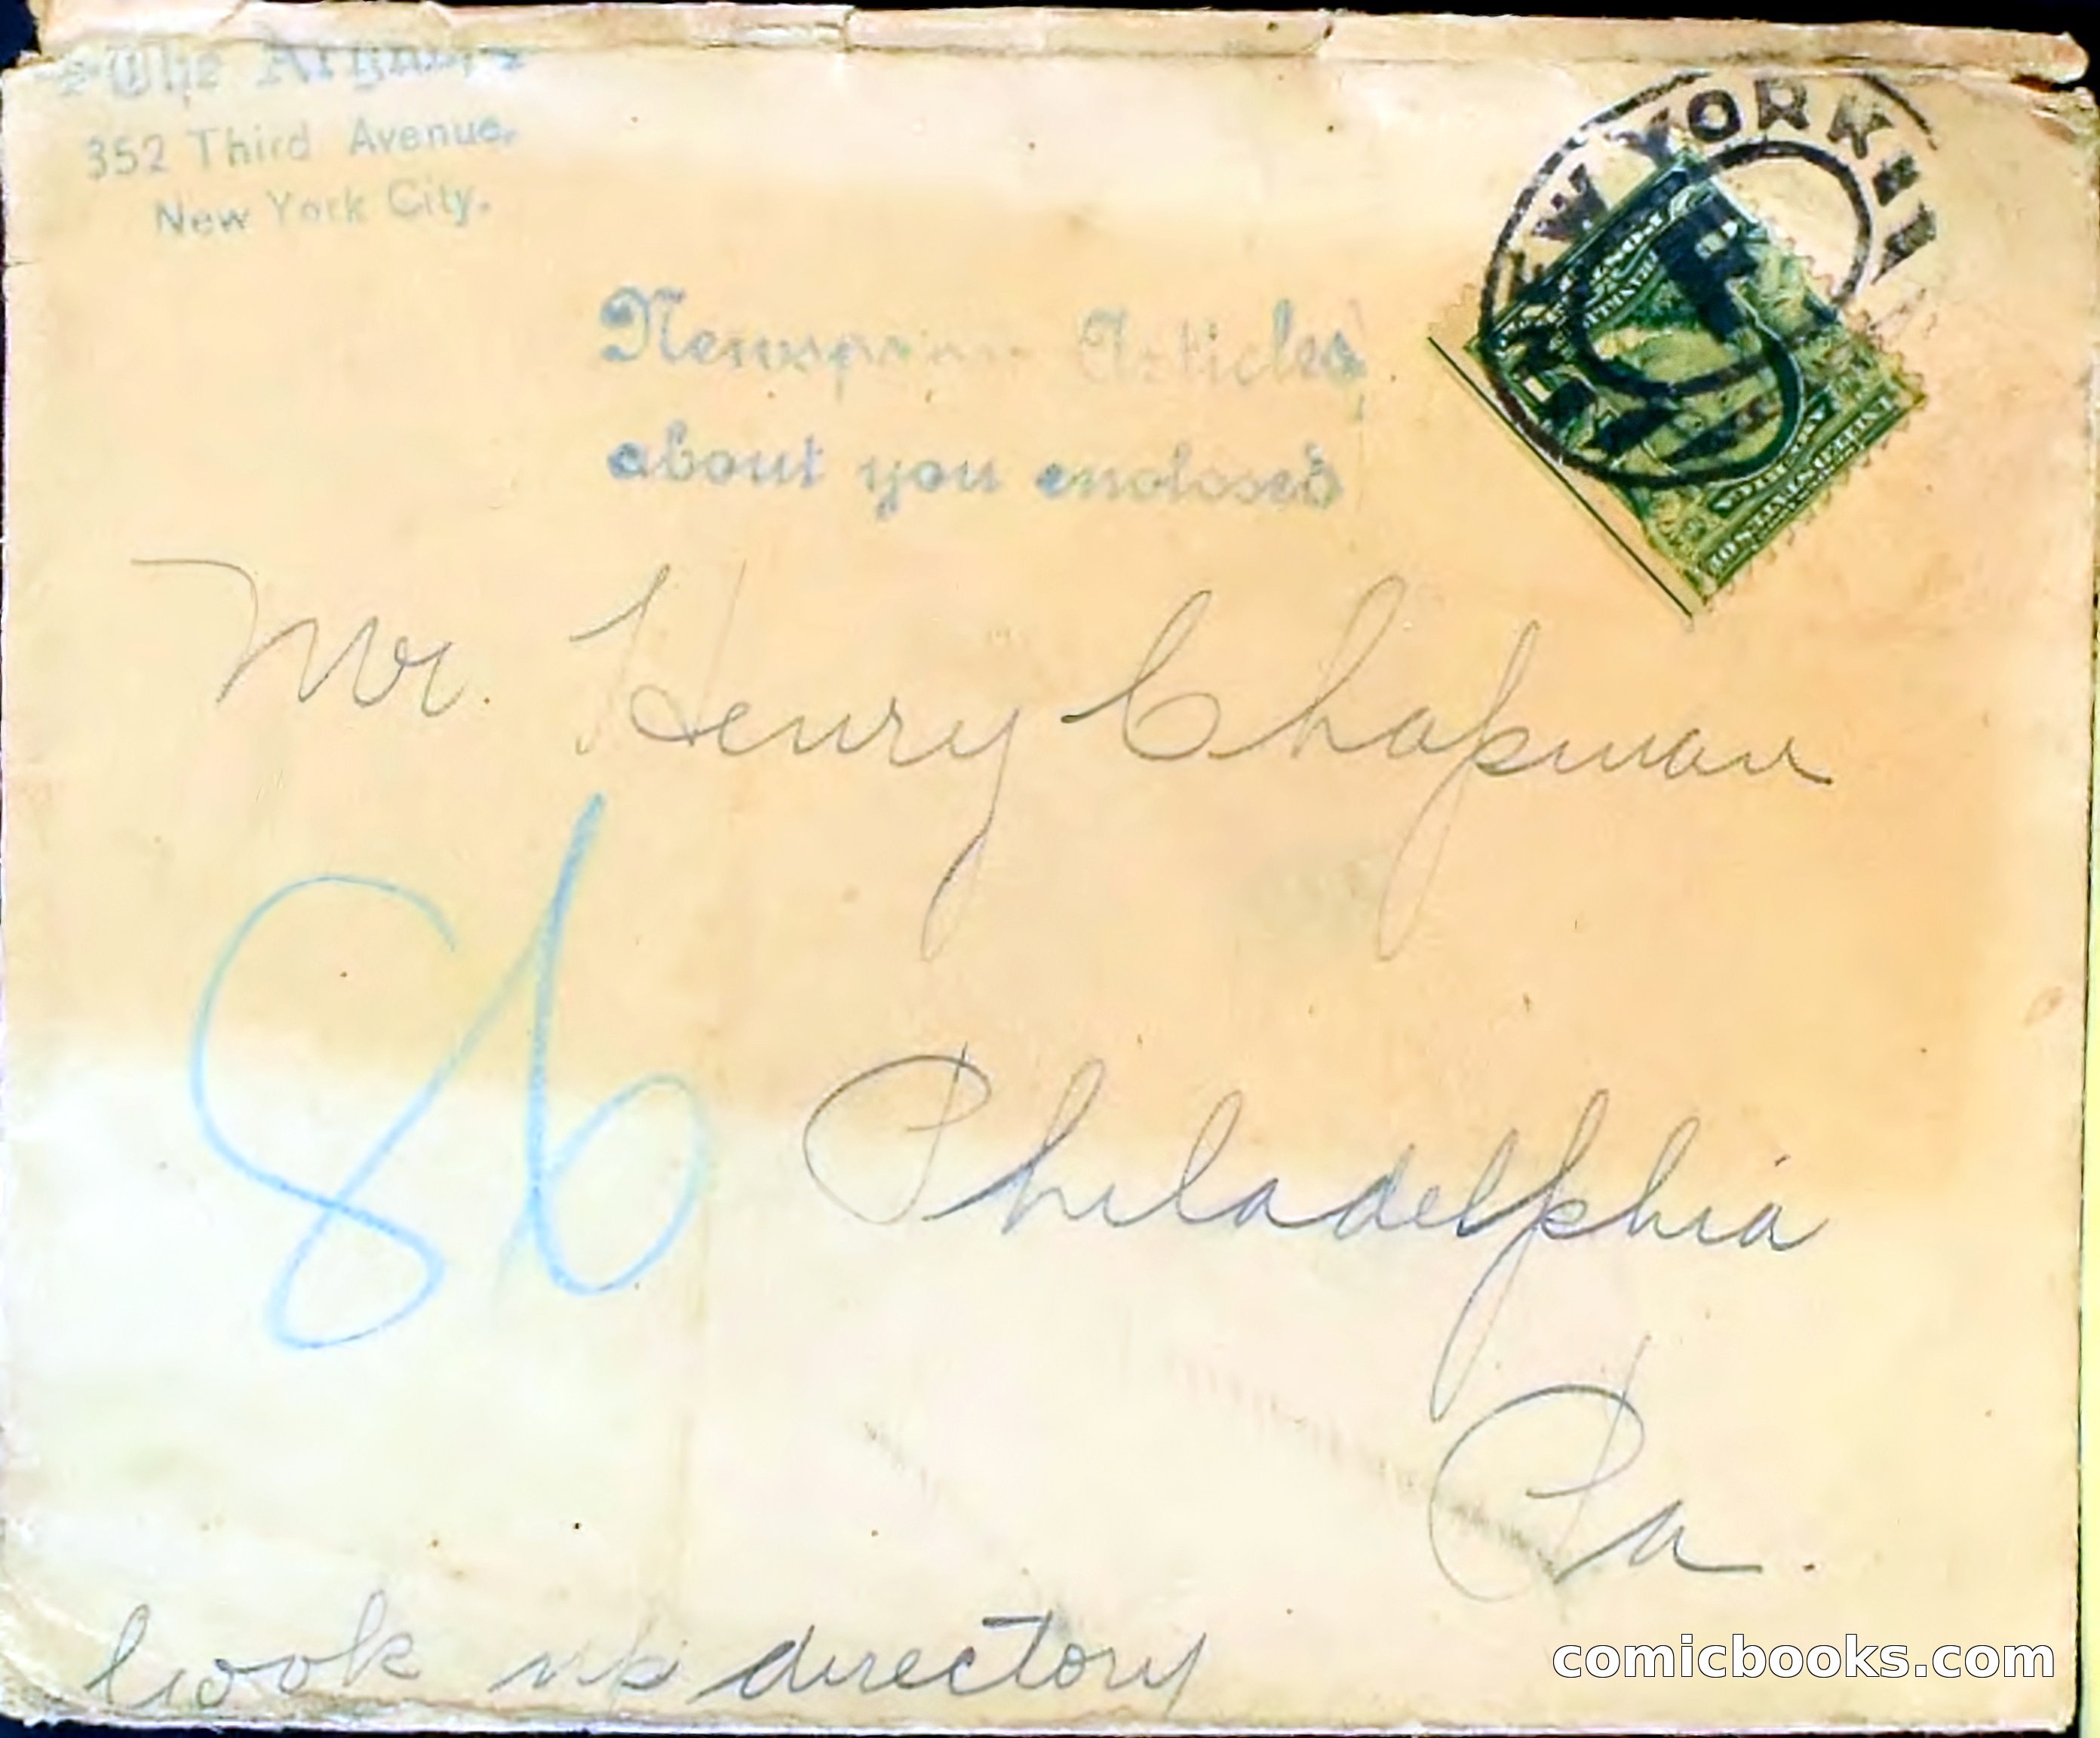 The Argus,
352 Third Avenue,
New York City.
NEW YORK N.Y.
Newspaper Articles
about you enclosed
Mr. Henry Chapman
86
Philadelphia
Pa.
look up directory
comicbooks.com